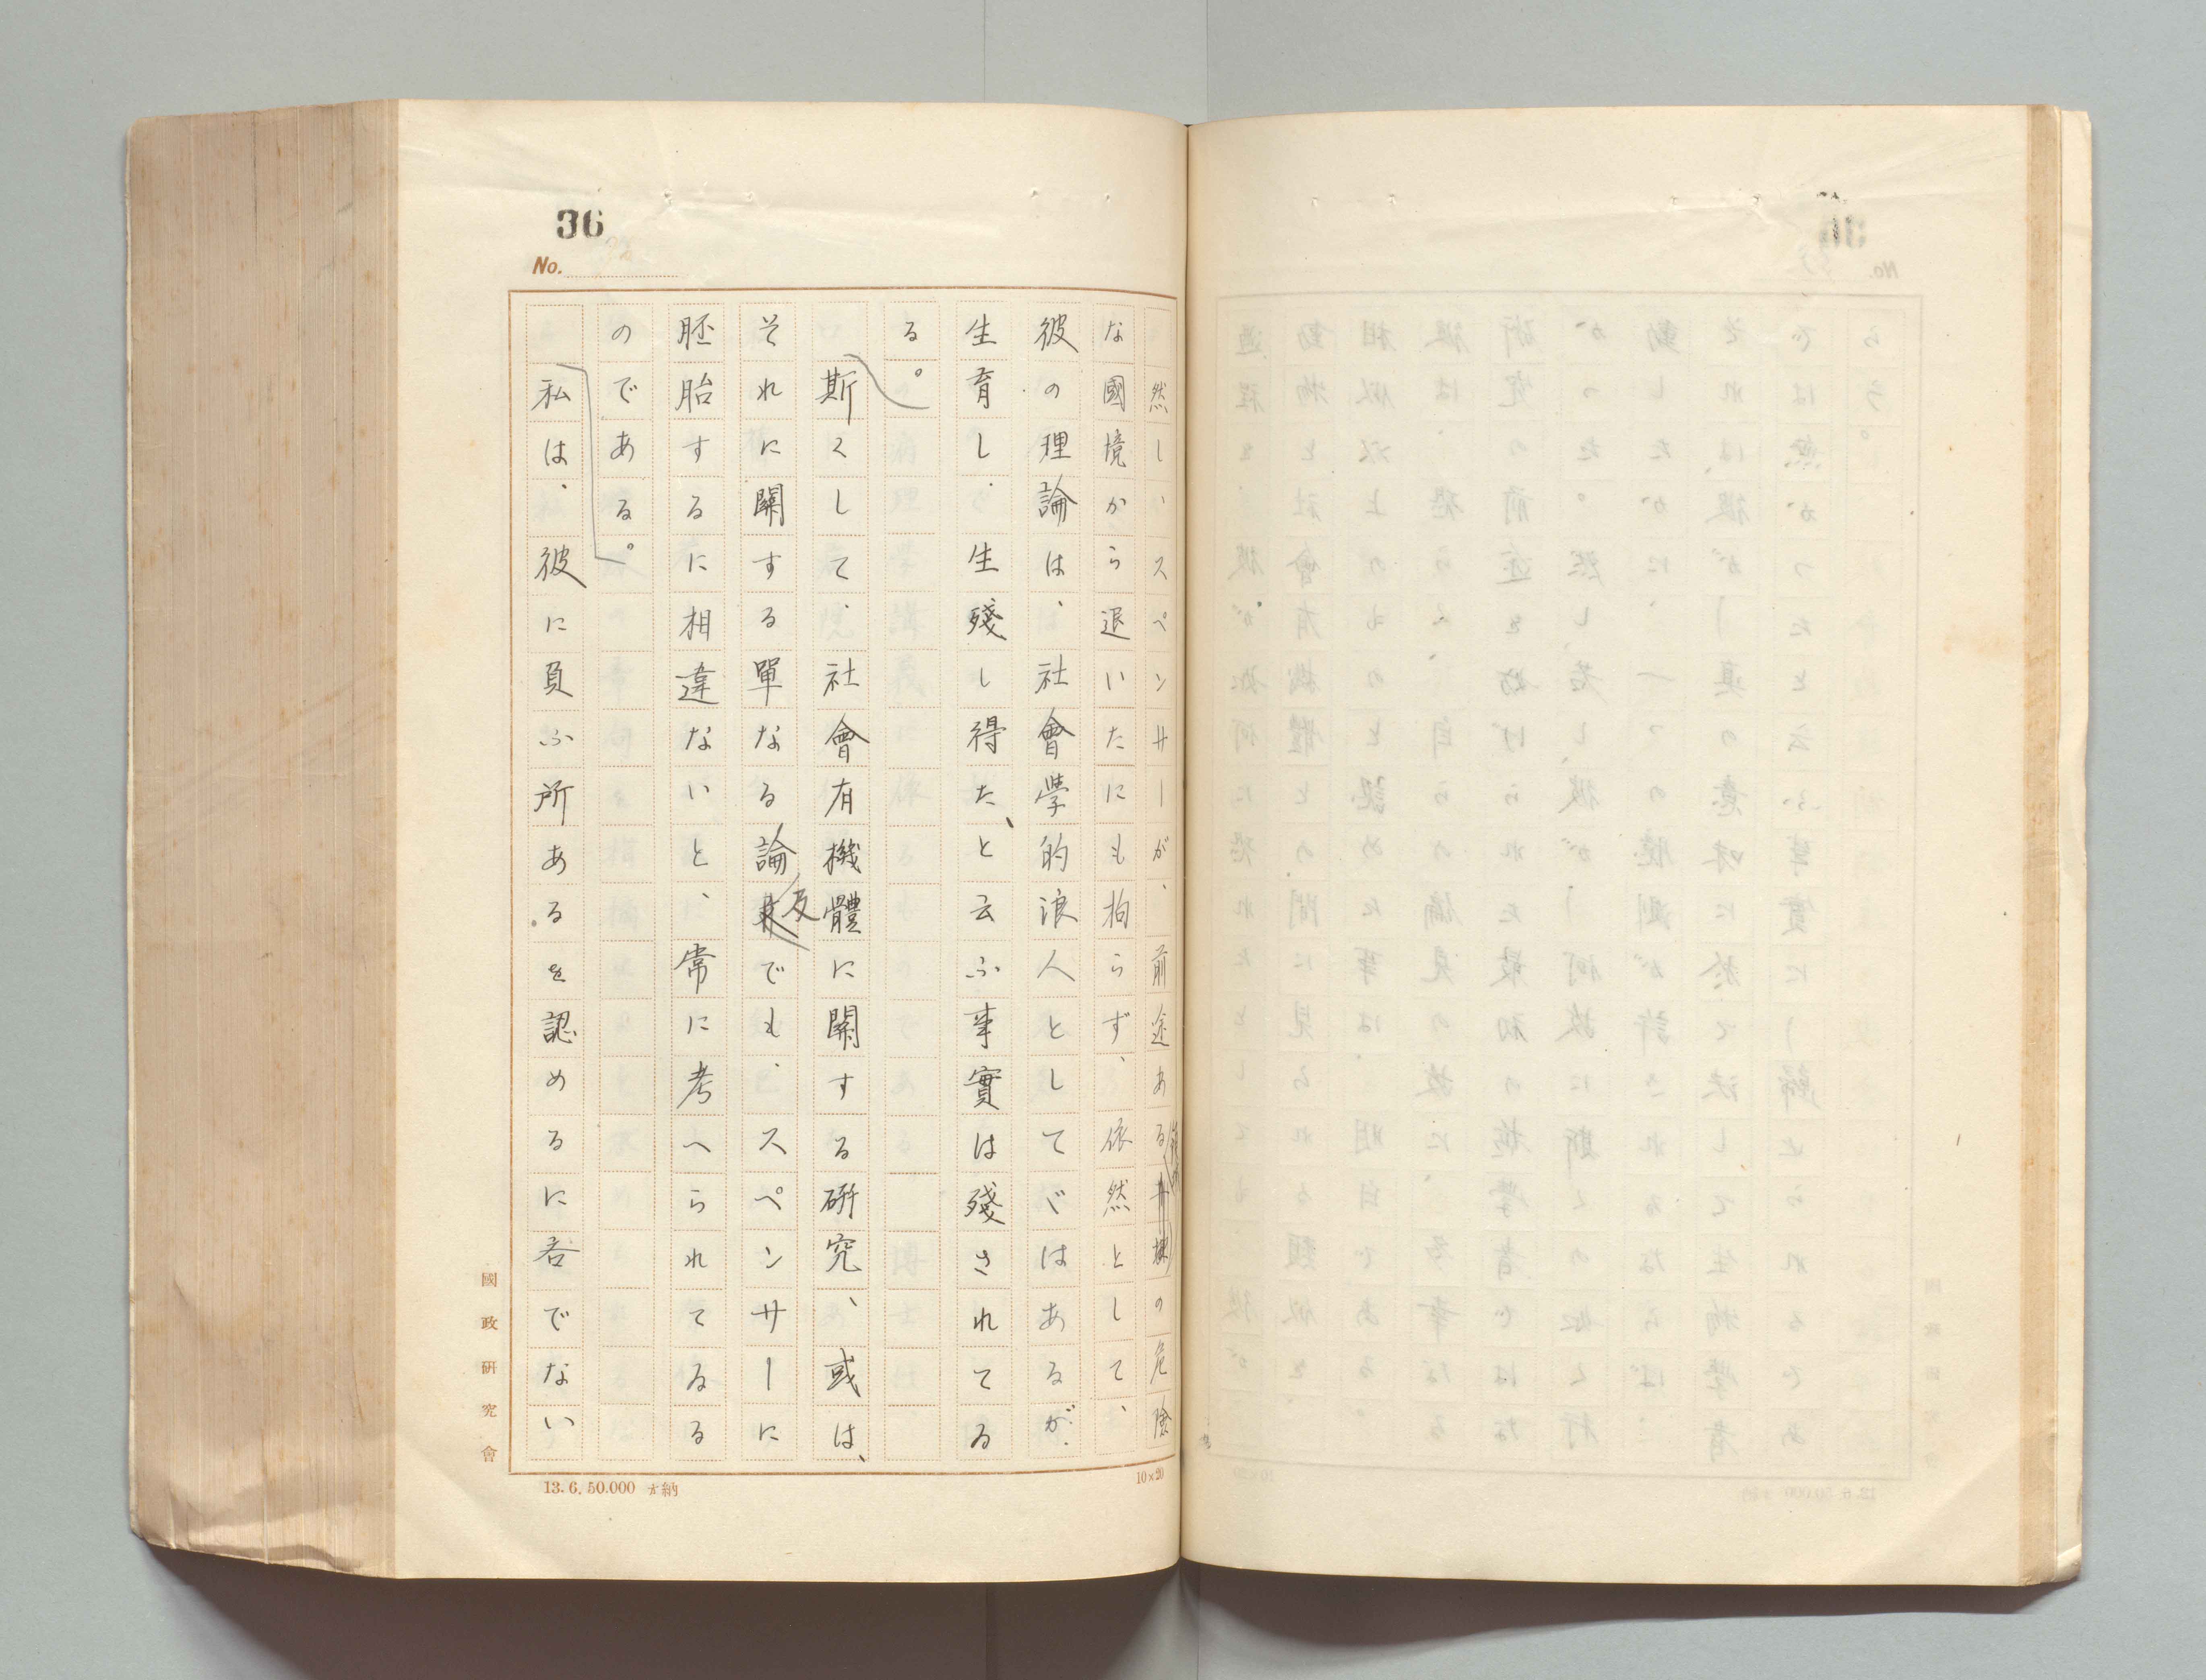 36
No.
然し、スペンサーが、前途あるの危險
な國境から退いたにも拘らず、依然として、
彼の理論は、社會學的浪人としてゞはあるが、
生育し、生殘し得た、と云ふ事實は殘されてゐ
る。
斯くして、社會有機體に關する研究、或は、
それに關する單なる論及でも、スペンサーに
胚胎するに相違ないと、常に考へられてゐる
のである。
私は、彼に負ふ所あるを認めるに吝でない
國政研究會
13.6.50.000 納
10×20